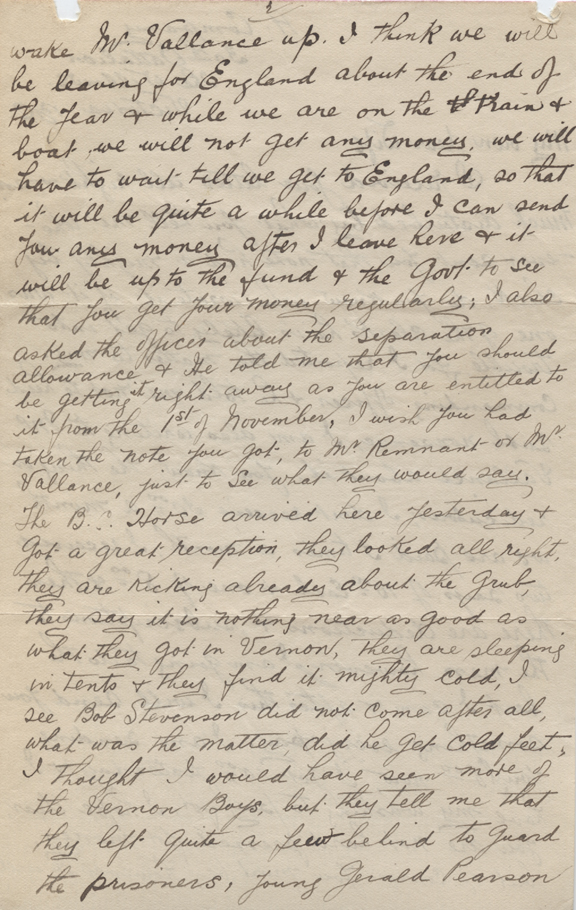 2
wake Mr. Vallance up. I think we will
be leaving for England about the end of
the year & while we are on the train &
boat, we will not get any money, we will
have to wait till we get to England, so that
it will be quite a while before I can send
you any money after I leave here & it
will be up to the fund & the Govt. to see
that you get your money regularly; I also
asked the officer about the separation
allowance & He told me that you should
be getting it right away as you are entitled to
it from the 1st of November, I wish you had
taken the note you got, to Mr Remnant or Mr.
Vallance, just to see what they would say.
The B.C. Horse arrived here yesterday &
got a great reception, they looked all right,
they are kicking already about the Grub,
they say it is nothing near as good as
what they got in Vernon, they are sleeping
in tents & they find it mighty cold, I
see Bob Stevenson did not come after all,
what was the matter, did he get cold feet,
I thought I would have seen more of
the Vernon Boys, but they tell me that
they left quite a few behind to guard
the prisoners, young Gerald Pearson